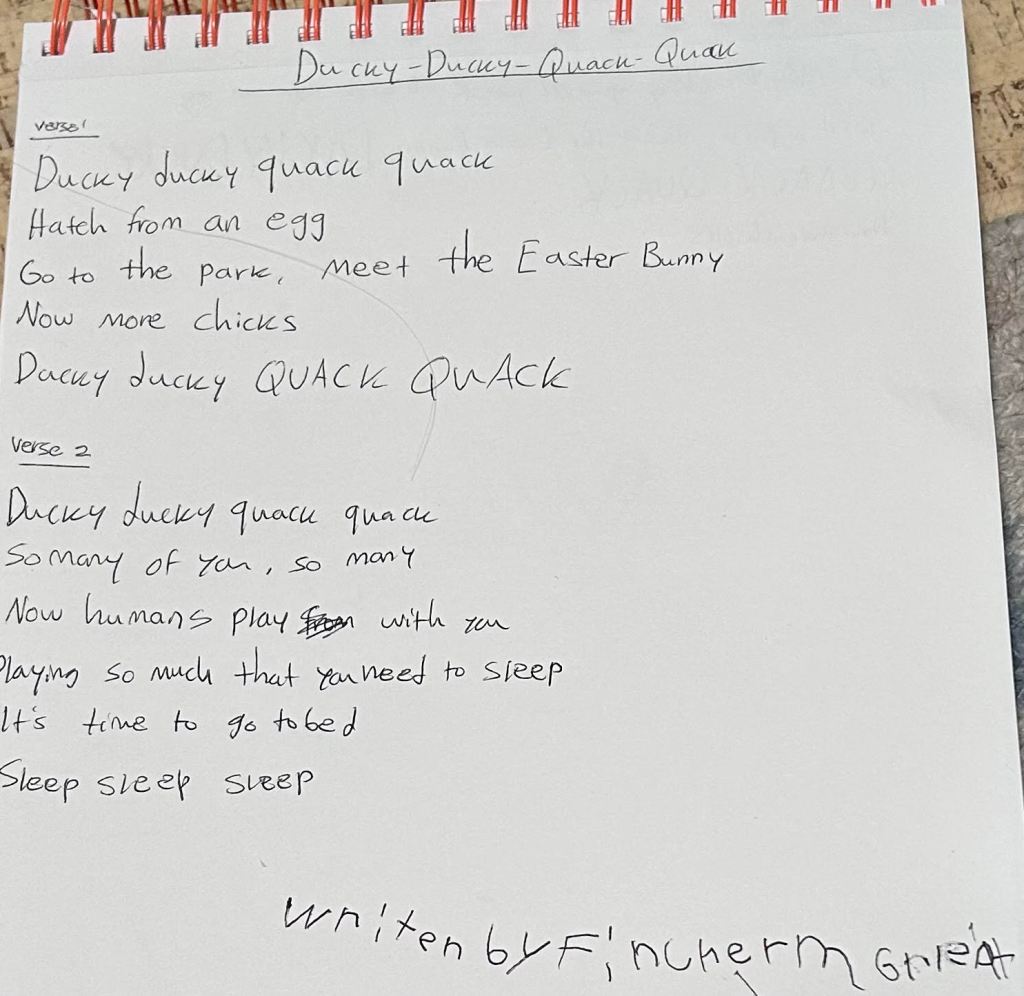 Ducky-Ducky-Quack-Quack
Verse 1
Ducky ducky quack quack
Hatch from an egg
Go to the park, meet the Easter Bunny
Now more chicks
Ducky ducky QUACK QUACK
Verse 2
Ducky ducky quack quack
So many of you, so many
Now humans play with you
Playing so much that you need to sleep
It's time to go to bed
Sleep sleep sleep
writen by Fincher m